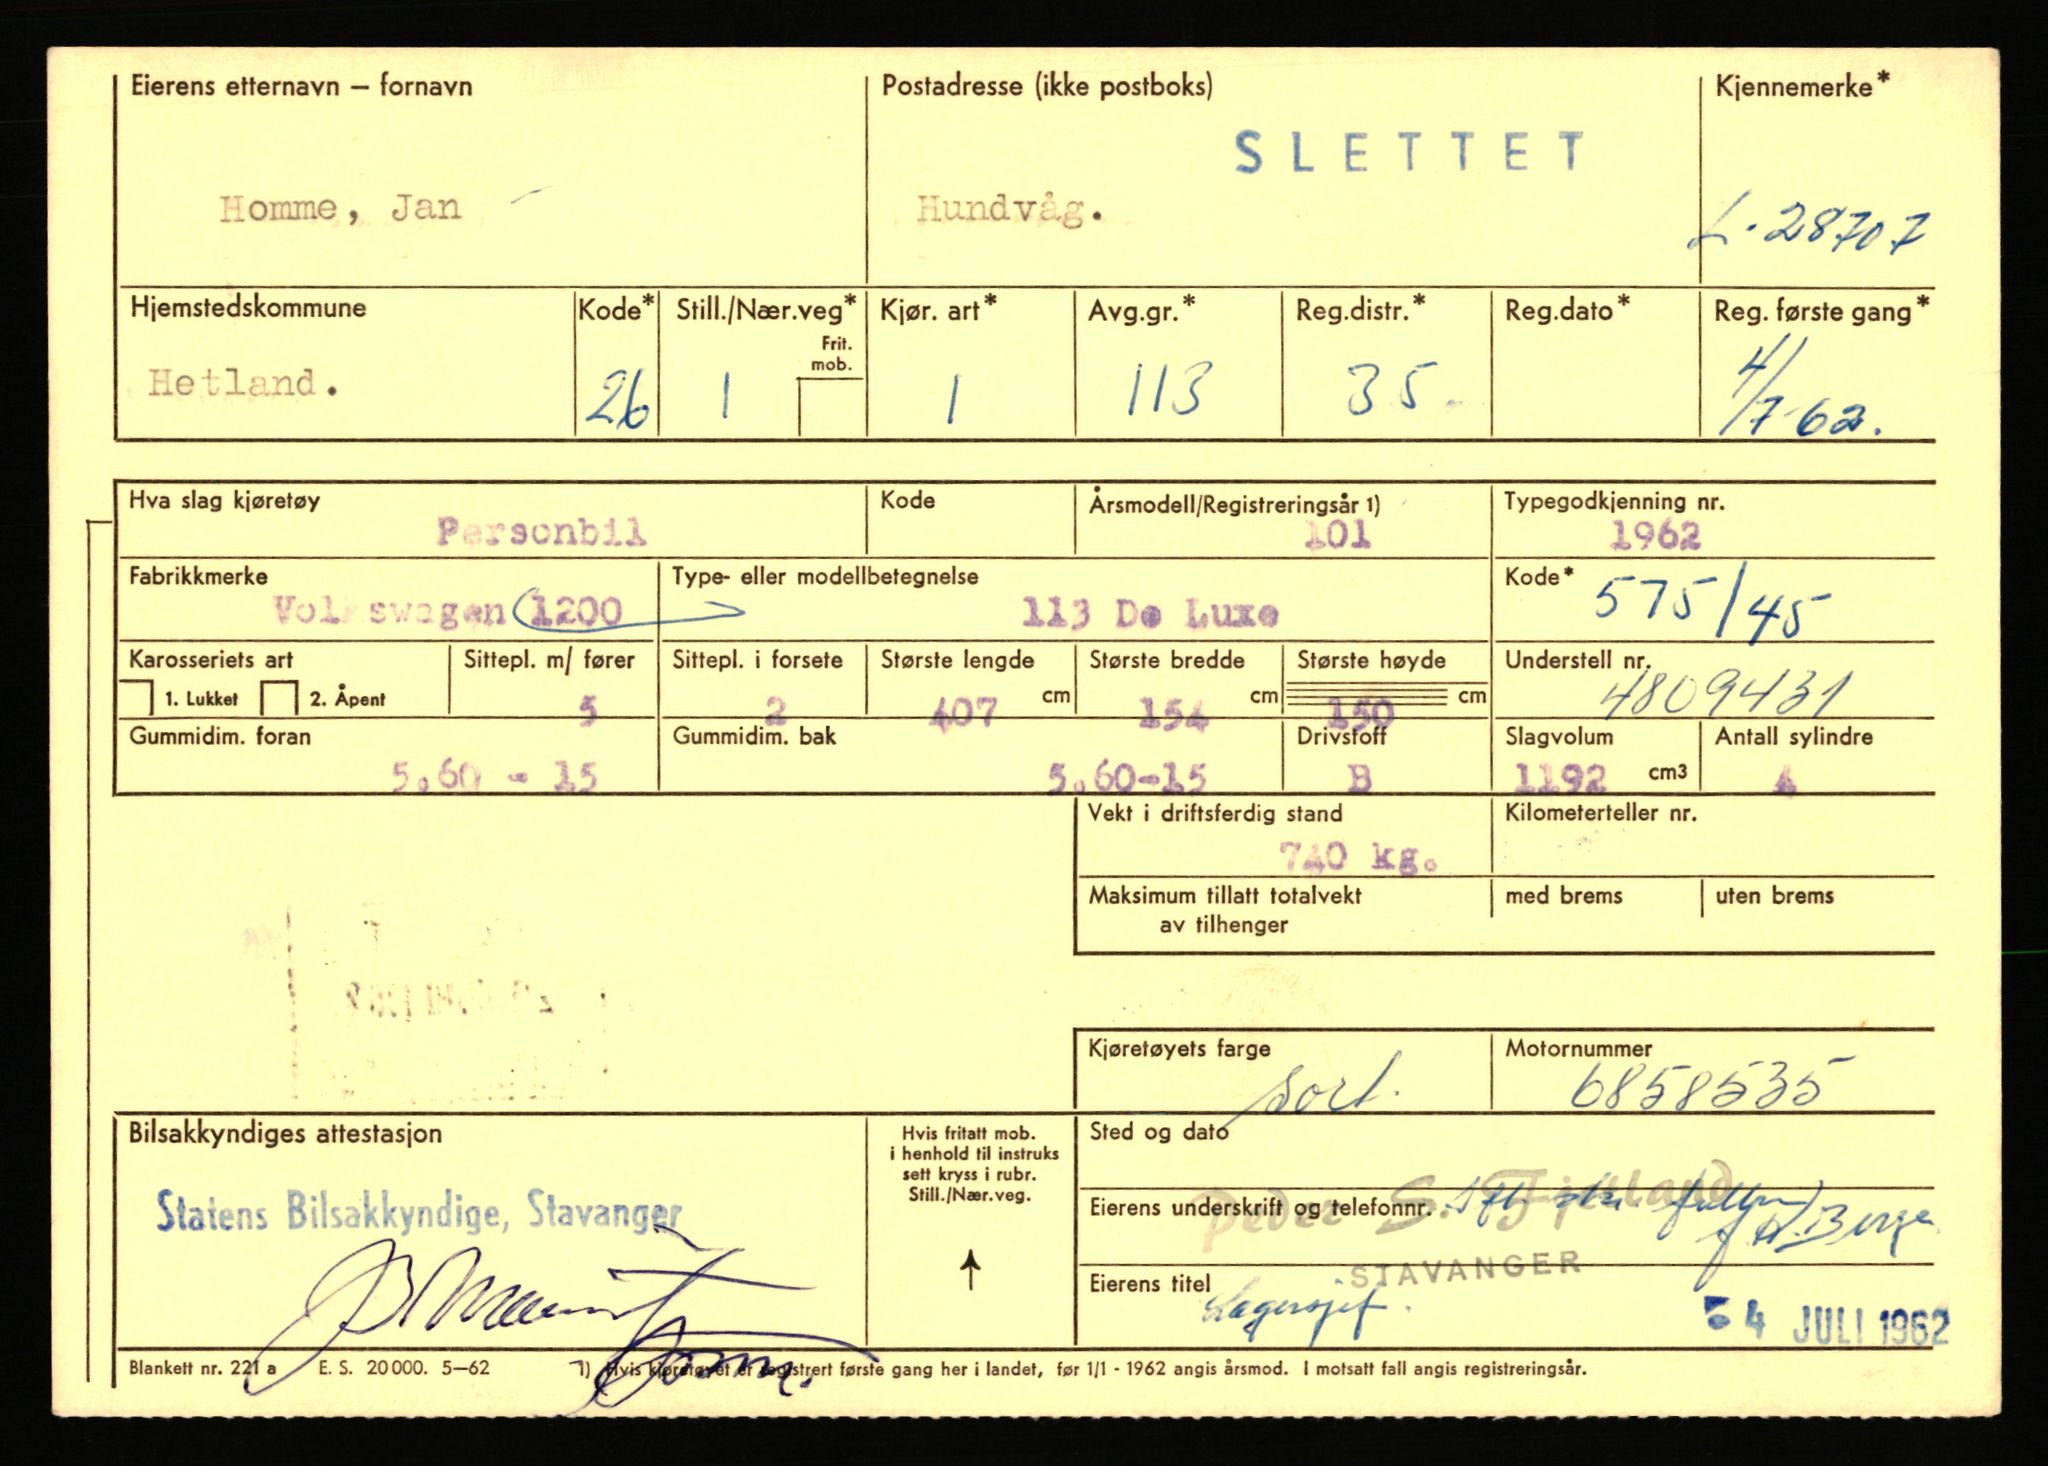 Eierens etternavn – fornavn
Postadresse (ikke postboks)
Kjennemerke*
SLETTET
Homme, Jan
Hundvåg.
L-28707
Hjemstedskommune
Kode*
Still./Nær.veg*
Frit. mob.
Kjør. art*
Avg.gr.*
Reg.distr.*
Reg.dato*
Reg. første gang*
Hetland.
26
1
1
113
35
4/7-62.
Hva slag kjøretøy
Kode
Årsmodell/Registreringsår 1)
Typegodkjenning nr.
Personbil
101
1962
Fabrikkmerke
Type- eller modellbetegnelse
Kode*
Volkswagen 1200
113 De Luxe
575/45
Karosseriets art
1. Lukket
2. Åpent
Sittepl. m/ fører
Sittepl. i forsete
Største lengde
Største bredde
Største høyde
Understell nr.
5
2
407 cm
154 cm
150 cm
4809431
Gummidim. foran
Gummidim. bak
Drivstoff
Slagvolum
Antall sylindre
5.60 - 15
5.60-15
B
1192 cm3
4
Vekt i driftsferdig stand
Kilometerteller nr.
740 kg.
Maksimum tillatt totalvekt
av tilhenger
med brems
uten brems
Kjøretøyets farge
Motornummer
sort.
6858535
Bilsakkyndiges attestasjon
Hvis fritatt mob.
i henhold til instruks
sett kryss i rubr.
Still./Nær.veg.
Sted og dato
Statens Bilsakkyndige, Stavanger
Eierens underskrift og telefonnr.
Peder S. Fjelland
STAVANGER
Eierens titel
Lagersjef.
4 JULI 1962
Blankett nr. 221 a E. S. 20 000. 5–62
1) Hvis kjøretøyet er registrert første gang her i landet, før 1/1 - 1962 angis årsmod. I motsatt fall angis registreringsår.